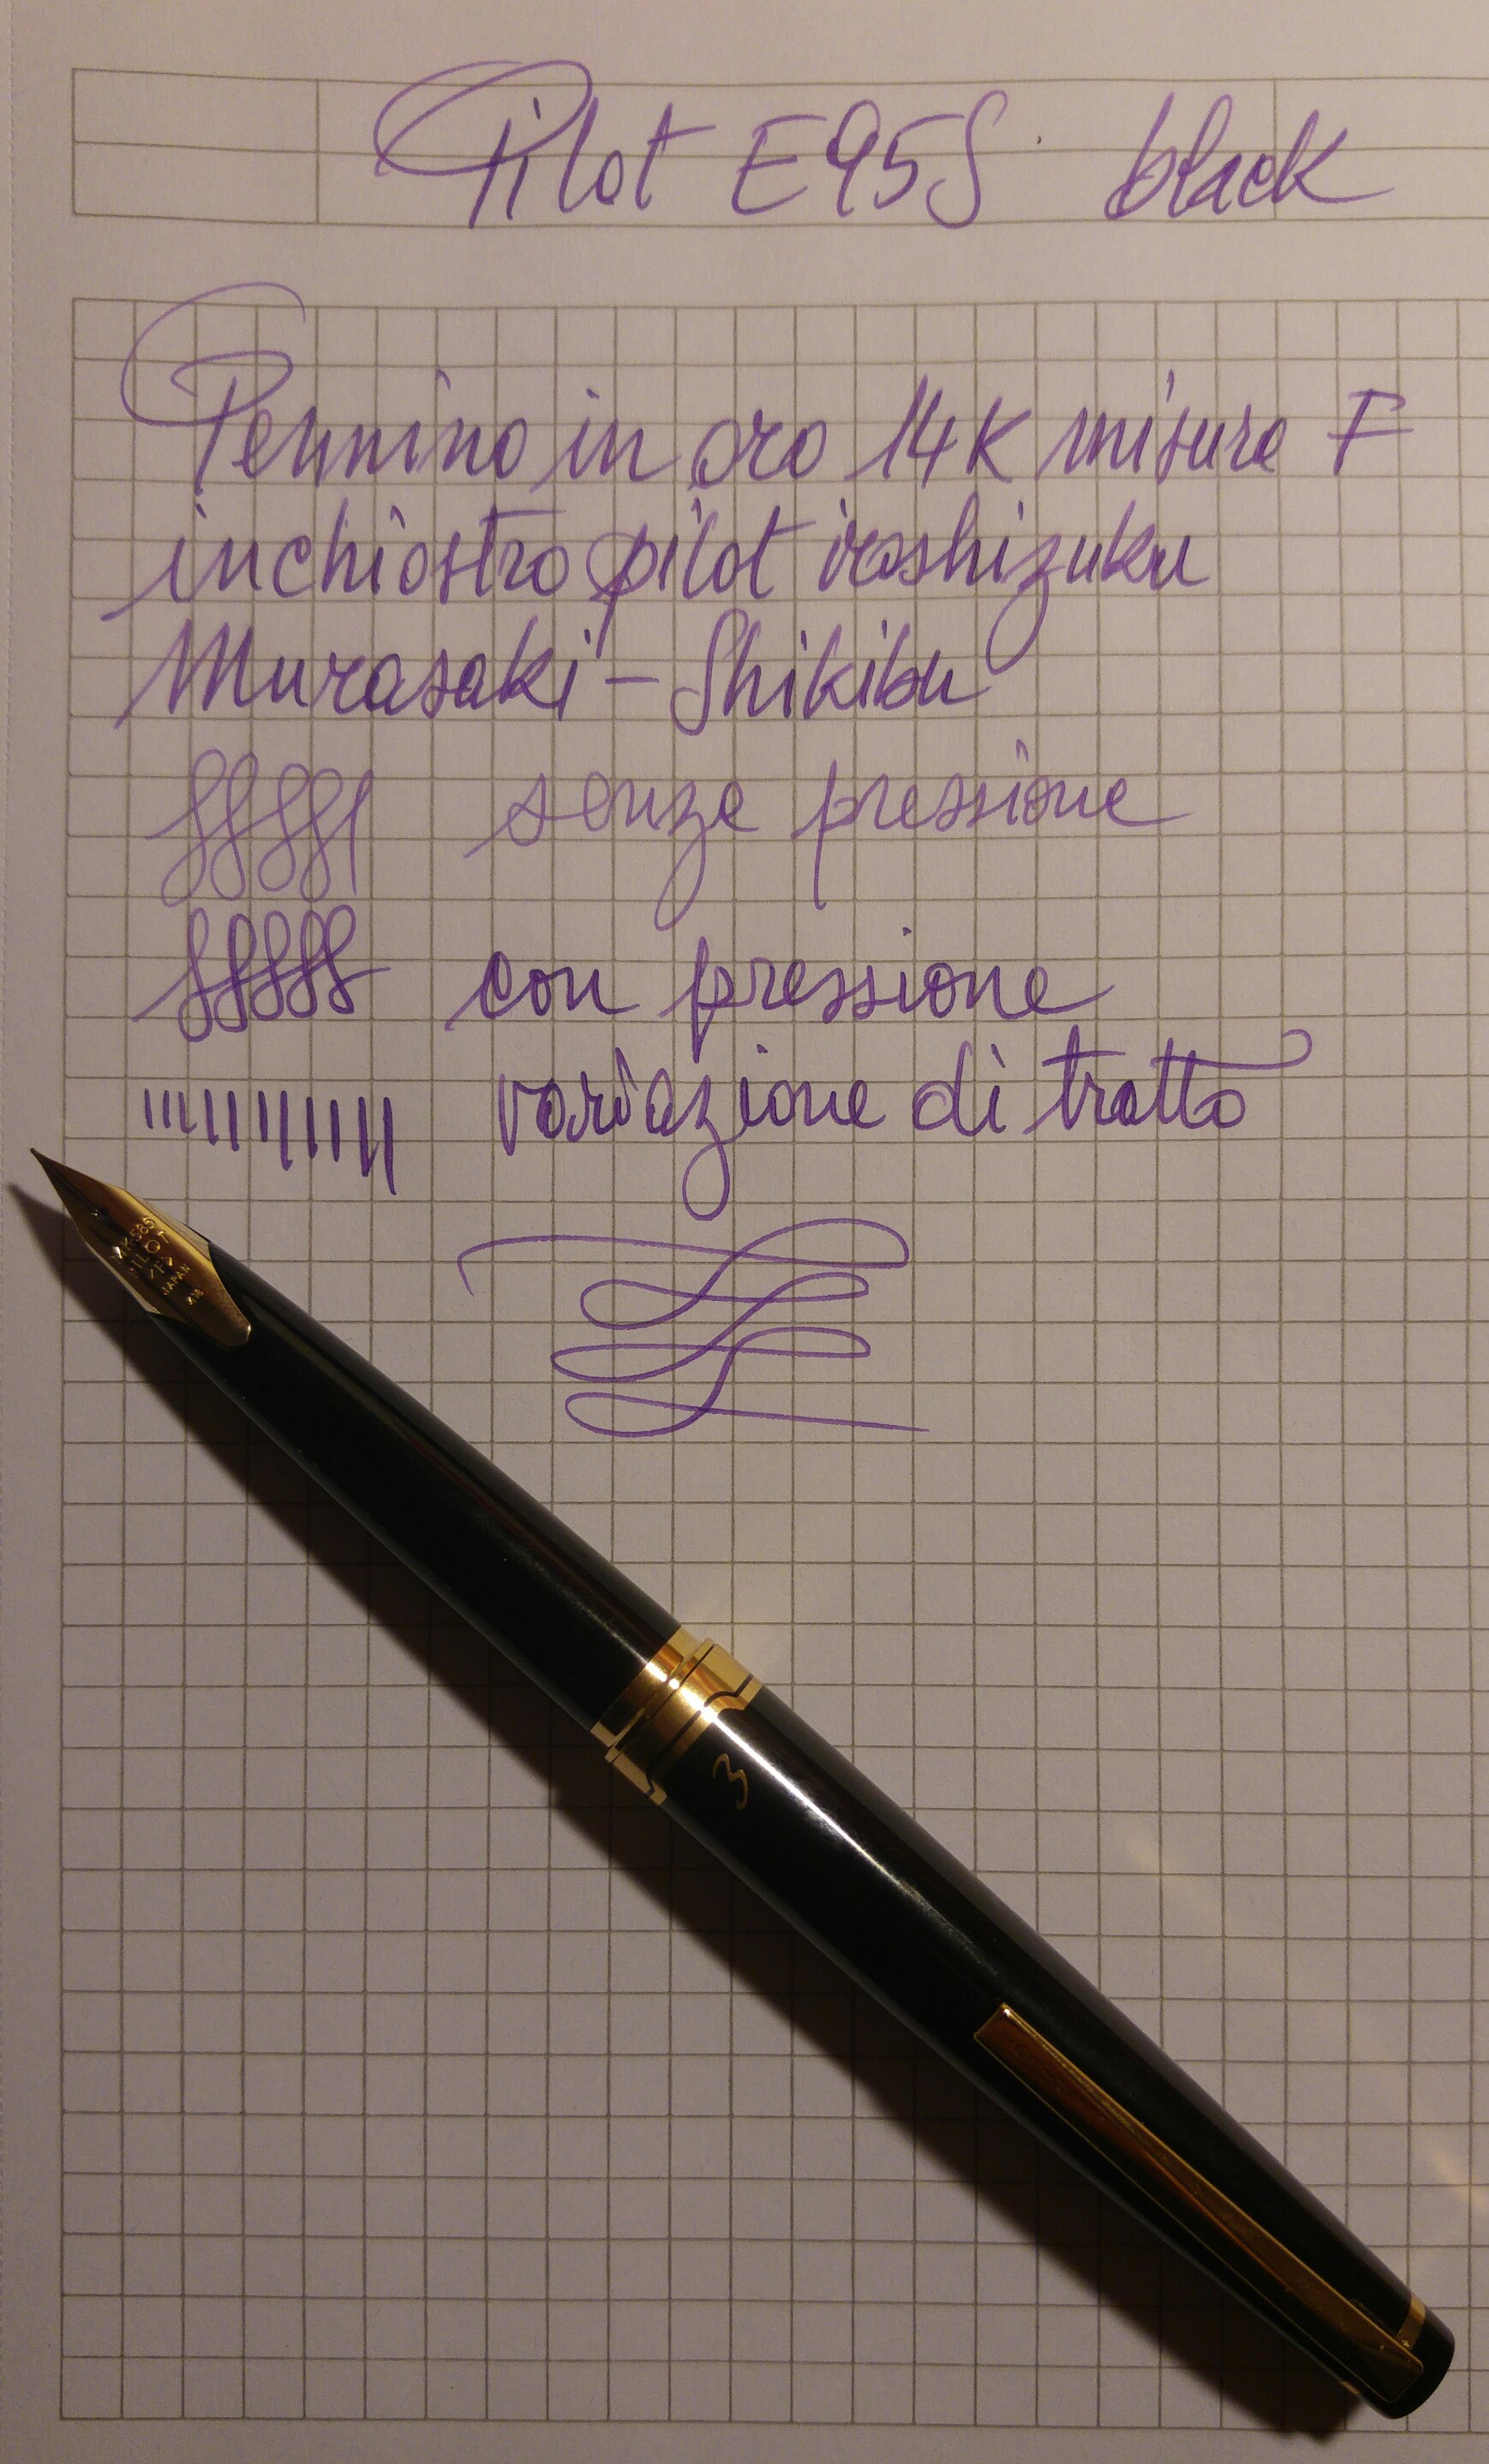 Pilot E95S black
Pennino in oro 14K misura F
inchiostro pilot iroshizuku
Murasaki-Shikibu
senza pressione
con pressione
variazione di tratto
14K-585
PILOT
<F>
JAPAN
3